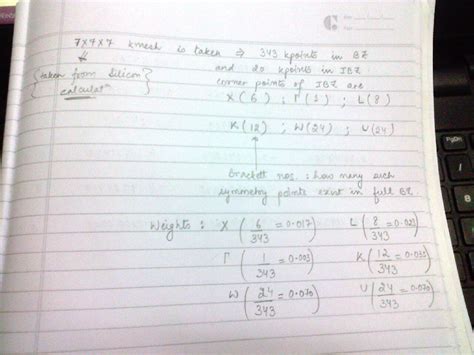 7x7x7 kmesh is taken ⇒ 343 kpoints in BZ
and 20 kpoints in IBZ
{taken from Silicon
calculatn}
corner points of IBZ are
X(6) ; Γ(1) ; L(8)
K(12) ; W(24) ; U(24)
Brackett nos. : how many such
symmetry points exist in full BZ
Weights : X (6/343 = 0.017) L (8/343 = 0.023)
Γ (1/343 = 0.003) K (12/343 = 0.035)
W (24/343 = 0.070) U (24/343 = 0.070)